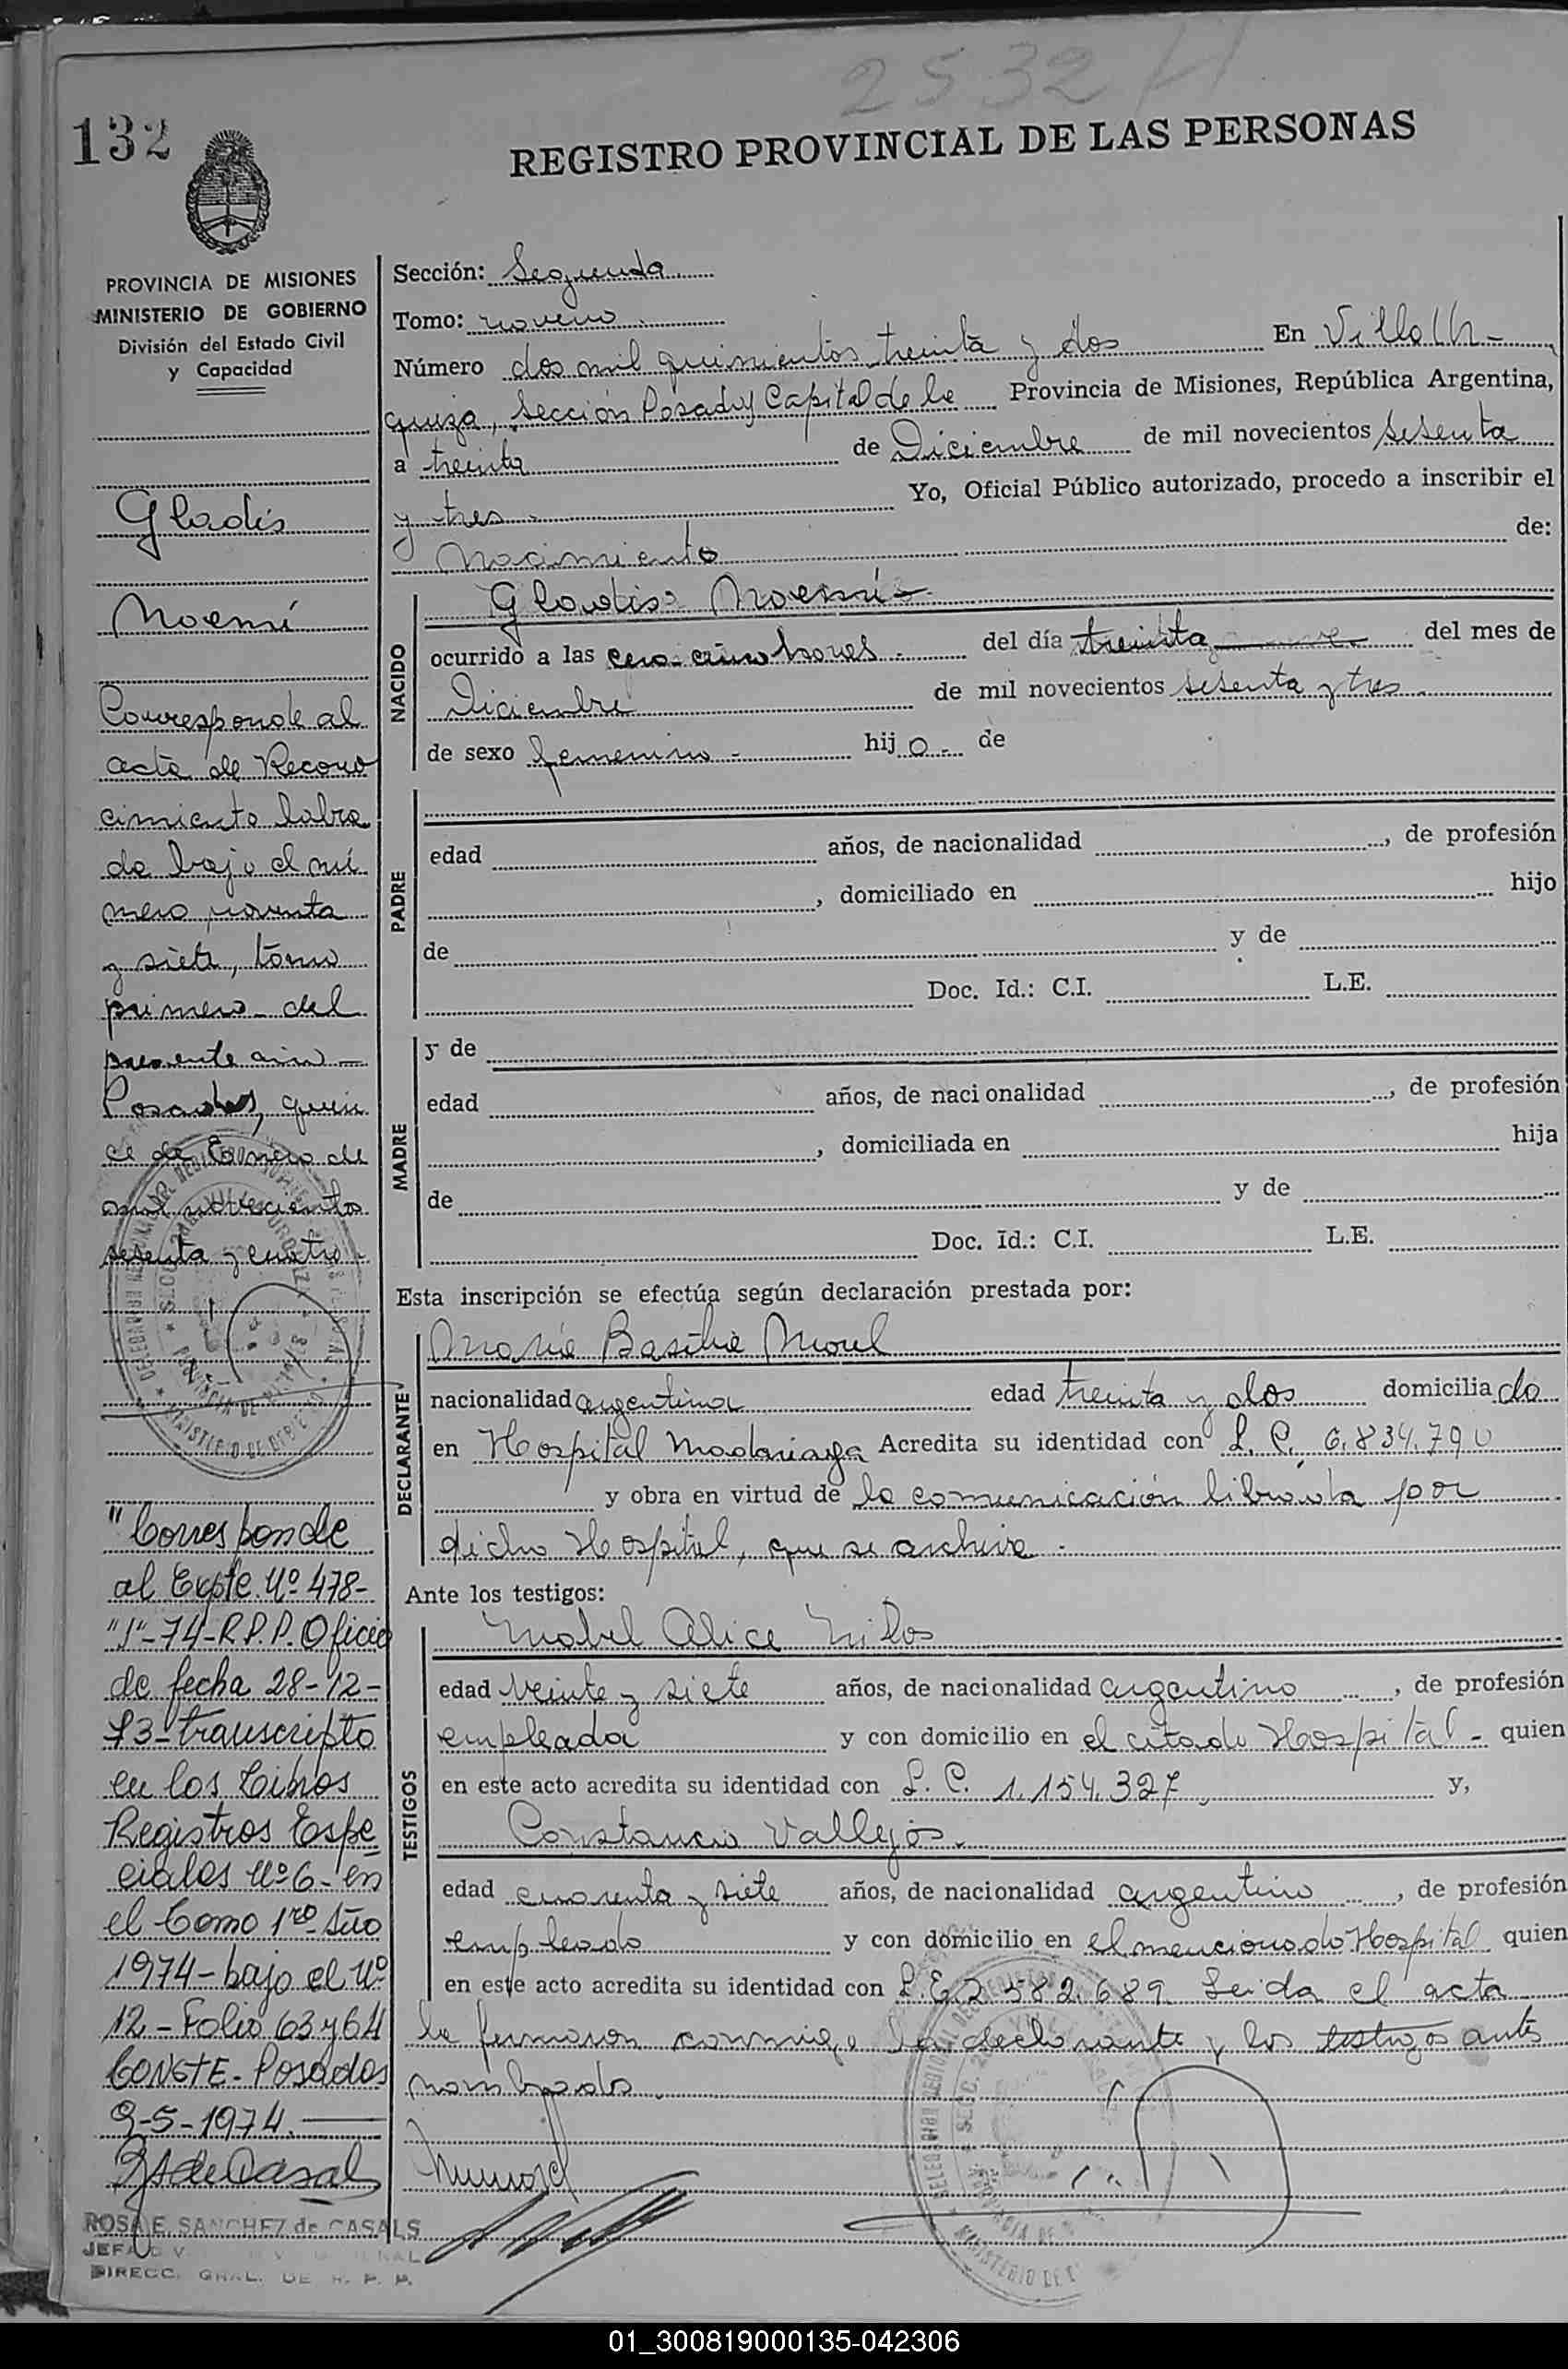 2532 H
132
REGISTRO PROVINCIAL DE LAS PERSONAS
PROVINCIA DE MISIONES
MINISTERIO DE GOBIERNO
División del Estado Civil
y Capacidad
Gladis
Noemí
Corresponde al
acta de Recono
cimiento labra
da bajo el nú
mero noventa
y siete, tomo
primero del
presente año
Posadas, quin
ce de Enero de
mil novecientos
sesenta y cuatro
"Corresponde
al Expte. Nº 478-
"J"-74-R.P.P. Oficio
de fecha 28-12-
73-transcripto
en los Libros
Registros Espe
ciales Nº 6- en
el Tomo 1ro- Año
1974- bajo el Nº
12- Folio 63 y 64
CONSTE- Posadas
9-5-1974.
ROSA E. SANCHEZ de CASALS
JEFA
DIRECC. GRAL. DE R. P. P.
Sección: Segunda
Tomo: noveno
Número dos mil quinientos treinta y dos En Villa Ur-
quiza, Sección Posadas Capital de la Provincia de Misiones, República Argentina,
a treinta de Diciembre de mil novecientos sesenta
y tres. Yo, Oficial Público autorizado, procedo a inscribir el
nacimiento de:
NACIDO
Gladis Noemí
ocurrido a las cero cinco horas. del día treinta del mes de
Diciembre de mil novecientos sesenta y tres
de sexo femenino hij o de
PADRE
edad años, de nacionalidad , de profesión
, domiciliado en hijo
de y de
Doc. Id.: C.I. L.E.
MADRE
y de
edad años, de naci onalidad , de profesión
, domiciliada en hija
de y de
Doc. Id.: C.I. L.E.
Esta inscripción se efectúa según declaración prestada por:
DECLARANTE
María Basilia Morel
nacionalidad argentina edad treinta y dos domicilia da
en Hospital Madariaga Acredita su identidad con L. C. 6.834.790
y obra en virtud de la comunicación librada por
dicho Hospital, que se archiva.
Ante los testigos:
TESTIGOS
Mabel Alice
edad veinte y siete años, de nacionalidad argentino , de profesión
empleada y con domicilio en el citado Hospital - quien
en este acto acredita su identidad con L. C. 1.154.327, y,
Constancio Vallejos.
edad cuarenta y siete años, de nacionalidad argentino , de profesión
empleado y con domicilio en el mencionado Hospital quien
en este acto acredita su identidad con L.E 2.582.689. Leida el acta
la firmaron conmigo la declarante y los testigos antes
nombrados.
01_300819000135-042306